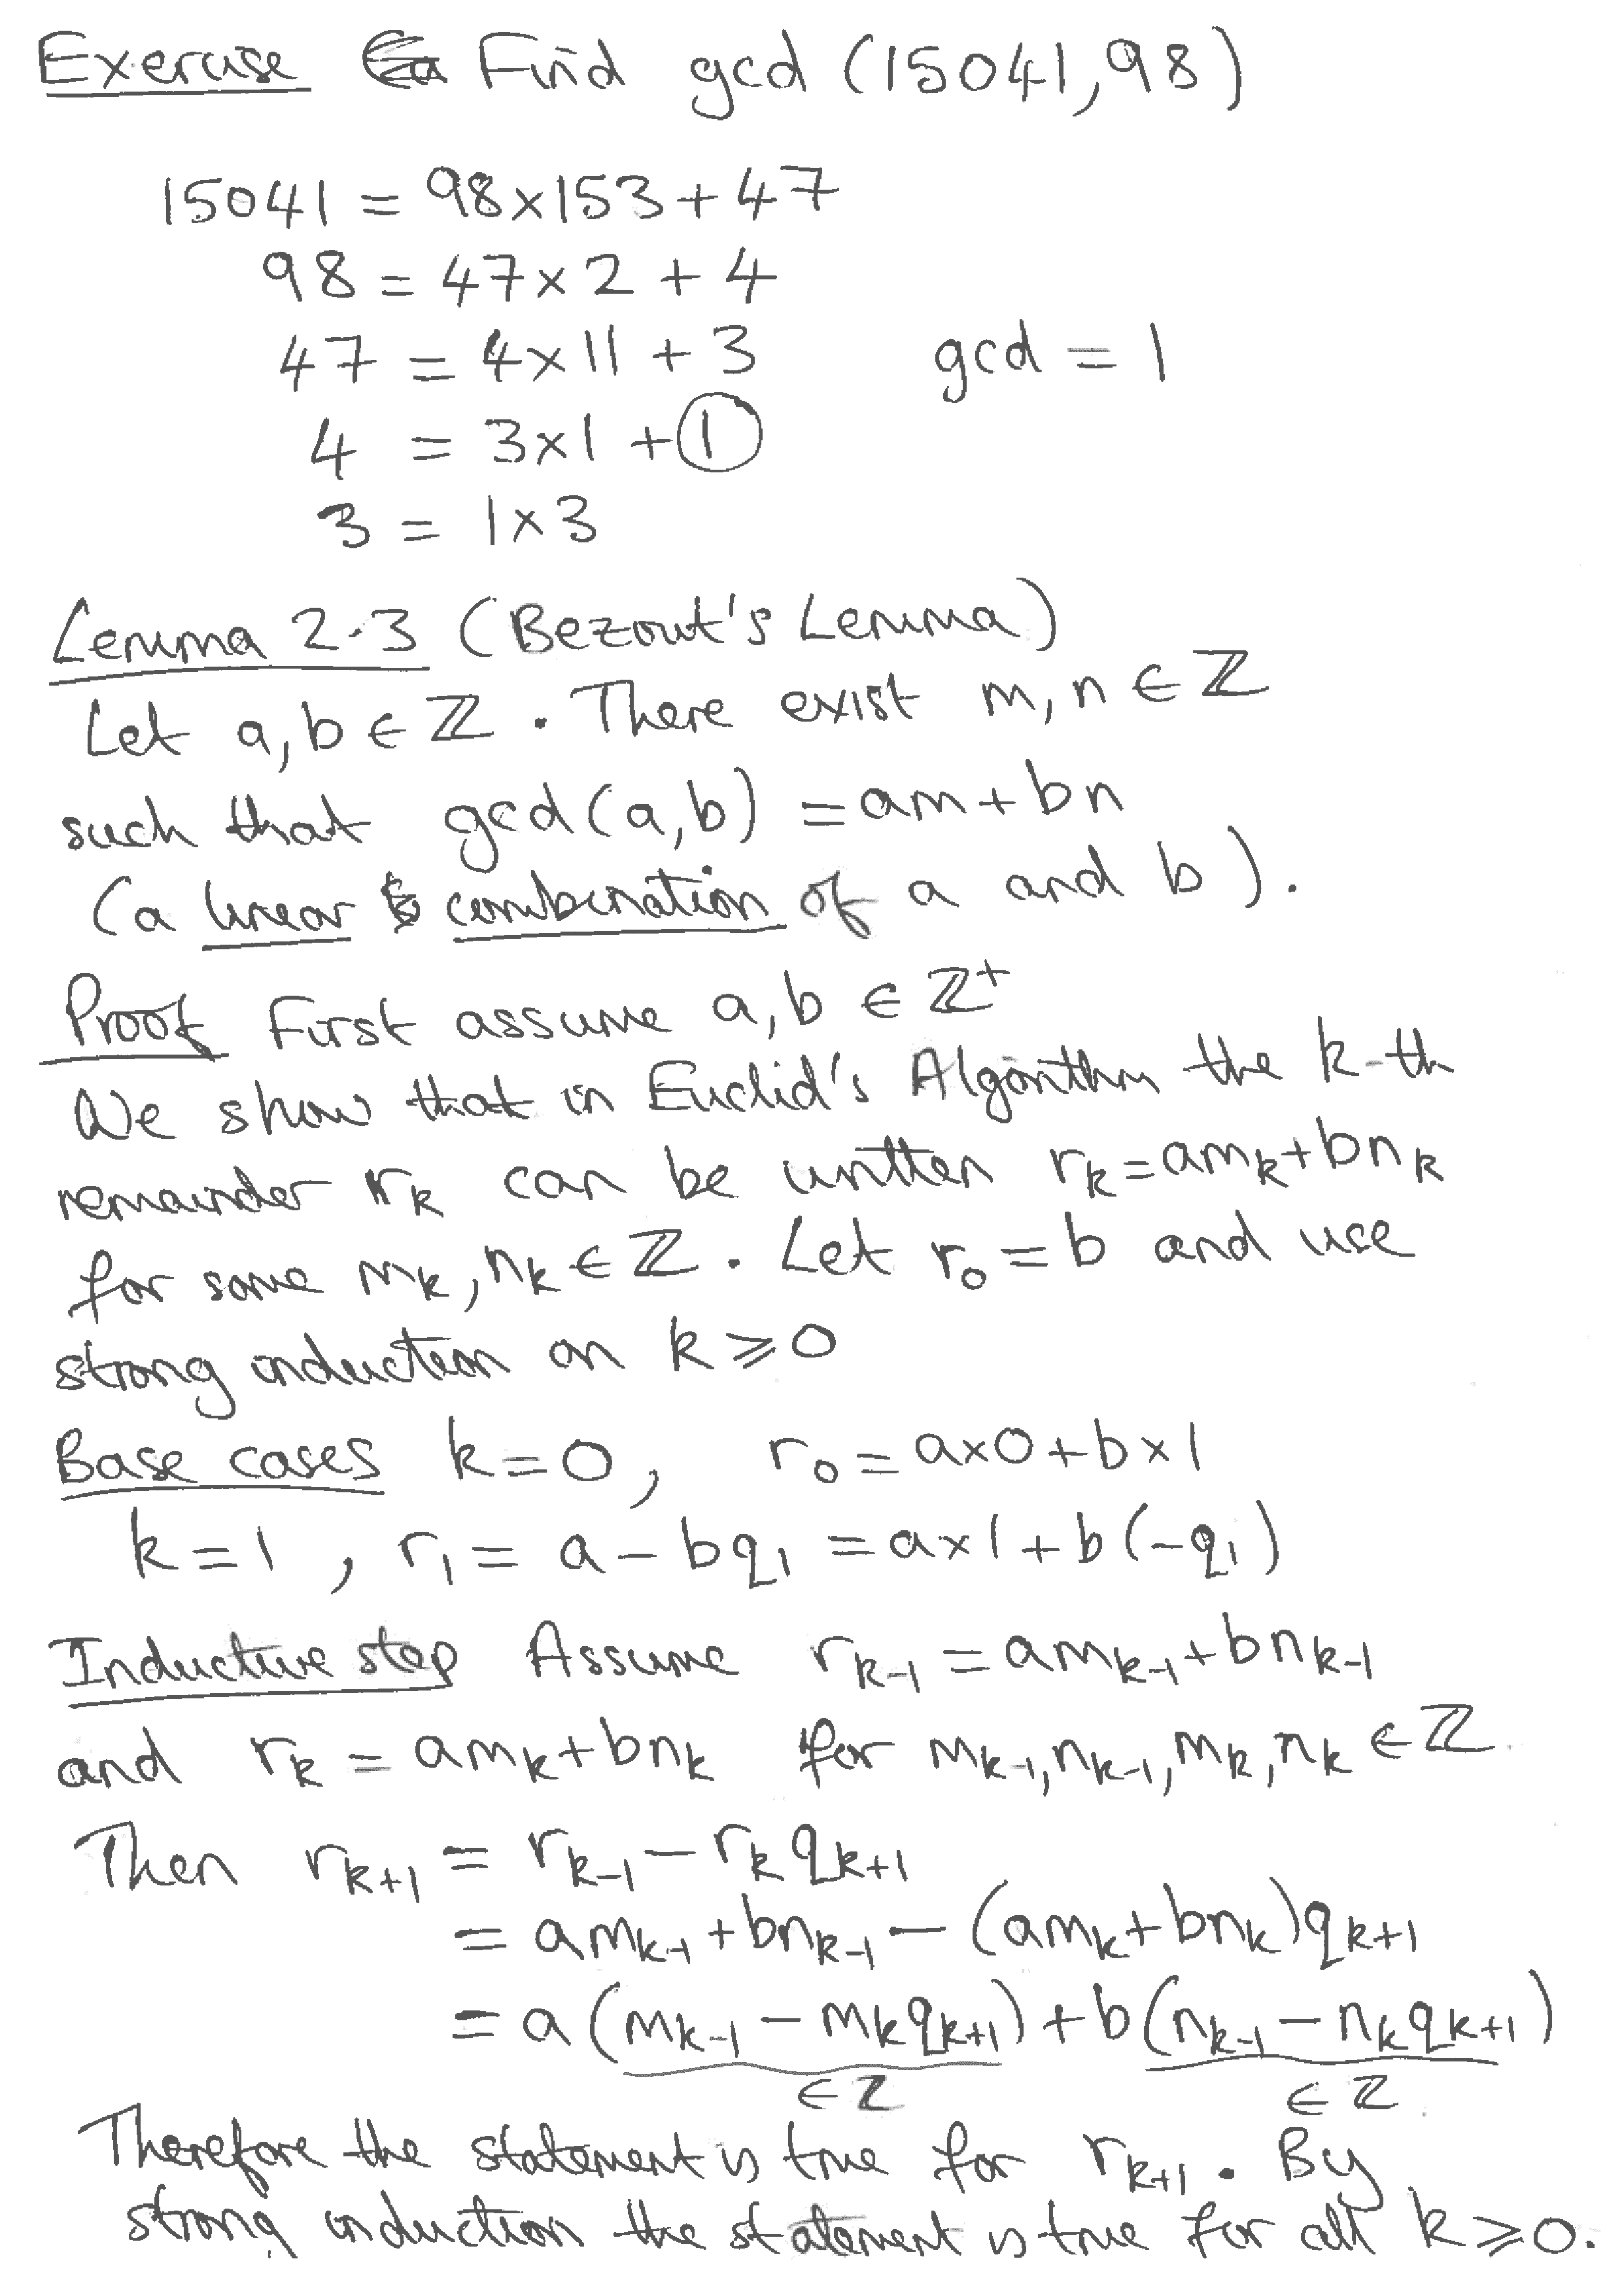 Exercise Find gcd (15041, 98)
15041 = 98×153 + 47
98 = 47×2 + 4
47 = 4×11 + 3 gcd = 1
4 = 3×1 + 1
3 = 1×3
Lemma 2.3 (Bezout's Lemma)
Let a, b ∈ ℤ. There exist m, n ∈ ℤ
such that gcd(a,b) = am + bn
(a linear combination of a and b).
Proof First assume a, b ∈ ℤ⁺
We show that in Euclid's Algorithm the k-th
remainder r_k can be written r_k = am_k + bn_k
for some m_k, n_k ∈ ℤ. Let r_0 = b and use
strong induction on k ⩾ 0
Base cases k = 0, r_0 = a×0 + b×1
k = 1, r_1 = a − bq_1 = a×1 + b(−q_1)
Inductive step Assume r_{k-1} = am_{k-1} + bn_{k-1}
and r_k = am_k + bn_k for m_{k-1}, n_{k-1}, m_k, n_k ∈ ℤ
Then r_{k+1} = r_{k-1} − r_k q_{k+1}
= am_{k-1} + bn_{k-1} − (am_k + bn_k)q_{k+1}
= a(m_{k-1} − m_k q_{k+1}) + b(n_{k-1} − n_k q_{k+1})
∈ ℤ ∈ ℤ
Therefore the statement is true for r_{k+1}. By
strong induction the statement is true for all k ⩾ 0.